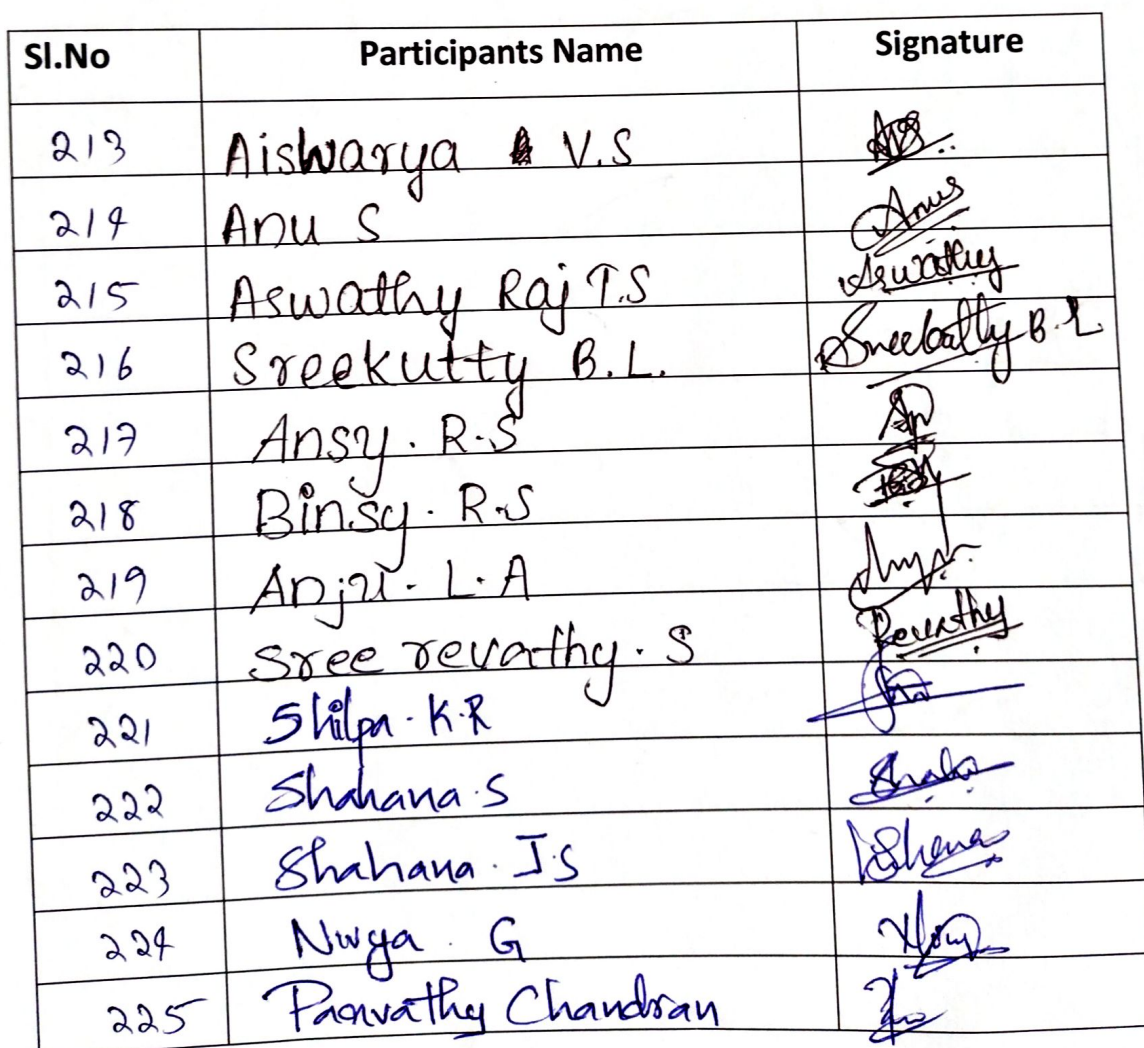 Sl.No Participants Name Signature
213 Aiswarya V.S
214 Anu S Anus
215 Aswathy Raj T.S Aswathy
216 Sreekutty B.L. Sreekutty B.L
217 Ansy. R.S
218 Binsy. R.S
219 Anju. L.A
220 Sree revathy. S Revathy
221 Shilpa. K.R
222 Shahana.S
223 Shahana. J.S
224 G
225 Parvathy Chandran